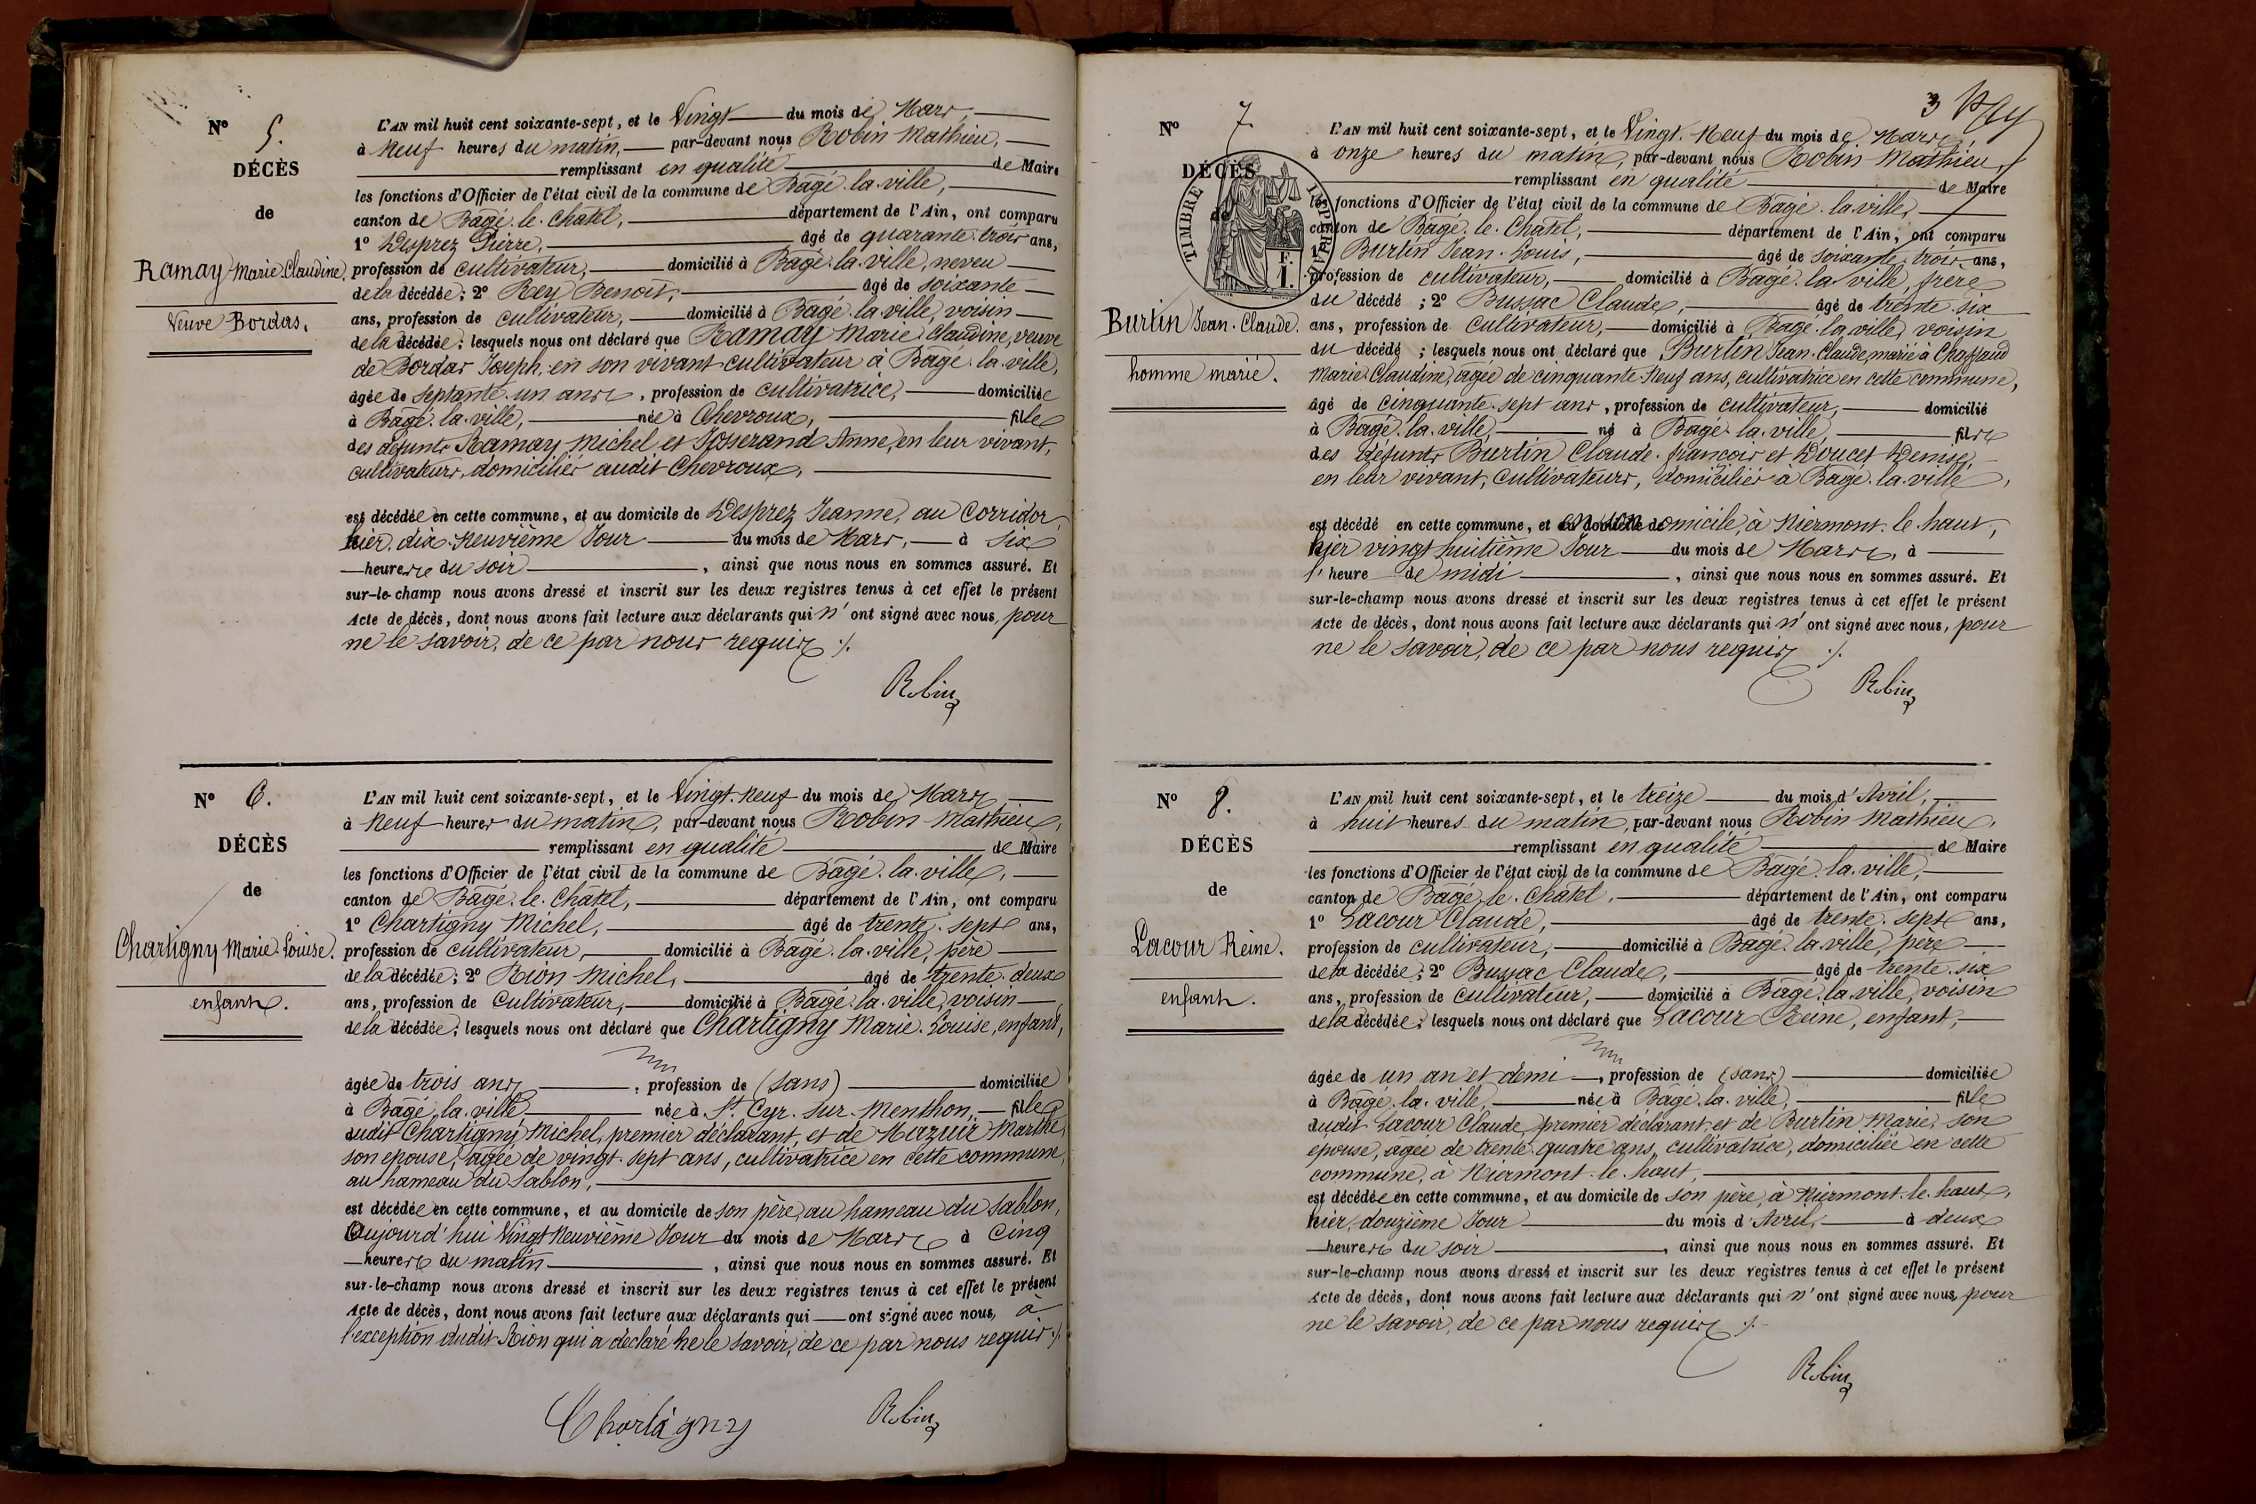 N° 5.
DÉCÈS
de
Ramay Marie Claudine.
Veuve Bordas.
L'AN mil huit cent soixante-sept, et le Vingt du mois de Mars,
à Neuf heures du matin, par-devant nous Robin Mathieu,
remplissant en qualité de Maire
les fonctions d'Officier de l'état civil de la commune de Bagé-la-ville,
canton de Bagé-le-Chatel, département de l'Ain, ont comparu
1° Desprez Pierre, âgé de quarante-trois ans,
profession de cultivateur, domicilié à Bagé-la-ville, neveu
de la décédée; 2° Rey Benoit, âgé de soixante
ans, profession de cultivateur, domicilié à Bagé-la-ville, voisin
de la décédée; lesquels nous ont déclaré que Ramay Marie Claudine, veuve
de Bordas Joseph, en son vivant cultivateur à Bagé-la-ville,
âgée de septante-un ans, profession de cultivatrice, domiciliée
à Bagé-la-ville, née à Chevroux, fille
des défunts Ramay Michel et Josserand Anne, en leur vivant,
cultivateurs, domiciliés audit Chevroux,
est décédée en cette commune, et au domicile de Desprez Jeanne, au Corridor,
hier, dix-neuvième Jour du mois de Mars, à six
heures du soir, ainsi que nous nous en sommes assuré. Et
sur-le-champ nous avons dressé et inscrit sur les deux registres tenus à cet effet le présent
Acte de décès, dont nous avons fait lecture aux déclarants qui n'ont signé avec nous, pour
ne le savoir, de ce par nous requis ./.
Robin
N° 6.
DÉCÈS
de
Chartigny Marie-Louise.
enfant.
L'AN mil huit cent soixante-sept, et le Vingt-Neuf du mois de Mars
à Neuf heures du matin, par-devant nous Robin Mathieu,
remplissant en qualité de Maire
les fonctions d'Officier de l'état civil de la commune de Bagé-la-ville,
canton de Bagé-le-Châtel, département de l'Ain, ont comparu
1° Chartigny Michel, âgé de trente-sept ans,
profession de cultivateur, domicilié à Bagé-la-ville, père
de la décédée; 2° Rion Michel, âgé de trente-deux
ans, profession de cultivateur, domicilié à Bagé-la-ville, voisin
de la décédée; lesquels nous ont déclaré que Chartigny Marie-Louise, enfant,
âgée de trois ans, profession de (sans) domiciliée
à Bagé-la-ville née à St. Cyr-sur-Menthon, fille
dudit Chartigny Michel, premier déclarant, et de Mazuir Marthe,
son épouse, âgée de vingt-sept ans, cultivatrice en cette commune,
au hameau du Sablon,
est décédée en cette commune, et au domicile de son père, au hameau du Sablon,
Aujourd'hui Vingt Neuvième Jour du mois de Mars à Cinq
heures du matin, ainsi que nous nous en sommes assuré. Et
sur-le-champ nous avons dressé et inscrit sur les deux registres tenus à cet effet le présent
Acte de décès, dont nous avons fait lecture aux déclarants qui ont signé avec nous, à
l'exception dudit Rion qui a déclaré ne le savoir, de ce par nous requis ./.
Chartigny Robin
3
N° 7
DÉCÈS
de
TIMBRE IMPÉRIAL
F. 1.
Burtin Jean-Claude.
homme marié.
L'AN mil huit cent soixante-sept, et le Vingt-Neuf du mois de Mars,
à onze heures du matin, par-devant nous Robin Mathieu,
remplissant en qualité de Maire
les fonctions d'Officier de l'état civil de la commune de Bagé-la-ville,
canton de Bagé-le-Chatel, département de l'Ain, ont comparu
1° Burtin Jean-Louis, âgé de soixante-trois ans,
profession de cultivateur, domicilié à Bagé-la-ville, frère
du décédé; 2° Bussac Claude, âgé de trente-six
ans, profession de cultivateur, domicilié à Bagé-la-ville, voisin
du décédé; lesquels nous ont déclaré que Burtin Jean-Claude, marié à Chaffaud
Marie-Claudine, âgée de cinquante-neuf ans, cultivatrice en cette commune,
âgé de cinquante-sept ans, profession de cultivateur, domicilié
à Bagé-la-ville, né à Bagé-la-ville, fils
des défunts Burtin Claude-François et Doucet Denise,
en leur vivant, cultivateurs, domiciliés à Bagé-la-ville,
est décédé en cette commune, et en son domicile, à Niermont-le-haut,
hier vingt huitième Jour du mois de Mars, à
l'heure de midi, ainsi que nous nous en sommes assuré. Et
sur-le-champ nous avons dressé et inscrit sur les deux registres tenus à cet effet le présent
Acte de décès, dont nous avons fait lecture aux déclarants qui n'ont signé avec nous, pour
ne le savoir, de ce par nous requis ./.
Robin
N° 8.
DÉCÈS
de
Lacour Reine.
enfant.
L'AN mil huit cent soixante-sept, et le treize du mois d'Avril,
à huit heures du matin, par-devant nous Robin Mathieu,
remplissant en qualité de Maire
les fonctions d'Officier de l'état civil de la commune de Bagé-la-ville,
canton de Bagé-le-Châtel, département de l'Ain, ont comparu
1° Lacour Claude, âgé de trente-sept ans,
profession de cultivateur, domicilié à Bagé-la-ville, père
de la décédée; 2° Bussac Claude, âgé de trente-six
ans, profession de cultivateur, domicilié à Bagé-la-ville, voisin
de la décédée; lesquels nous ont déclaré que Lacour Reine, enfant,
âgée de un an et demi, profession de (sans) domiciliée
à Bagé-la-ville, née à Bagé-la-ville, fille
dudit Lacour Claude, premier déclarant et de Burtin Marie, son
épouse, âgée de trente-quatre ans, cultivatrice, domiciliée en cette
commune, à Niermont-le-haut,
est décédée en cette commune, et au domicile de son père, à Niermont-le-haut,
hier, douzième Jour du mois d'Avril, à deux
heures du soir, ainsi que nous nous en sommes assuré. Et
sur-le-champ nous avons dressé et inscrit sur les deux registres tenus à cet effet le présent
Acte de décès, dont nous avons fait lecture aux déclarants qui n'ont signé avec nous, pour
ne le savoir, de ce par nous requis ./.
Robin